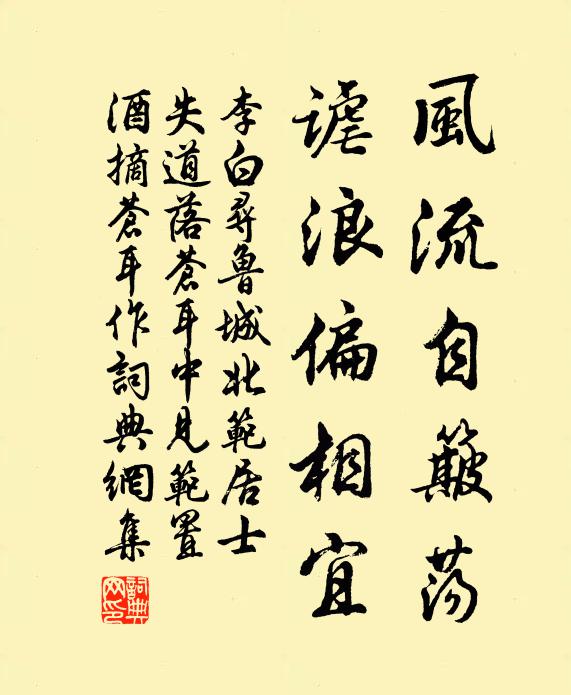 風流自簸蕩
謔浪偏相宜
李白尋魯城北範居士
失道落蒼耳中見範置
酒摘蒼耳作詞典網集
詞典網印